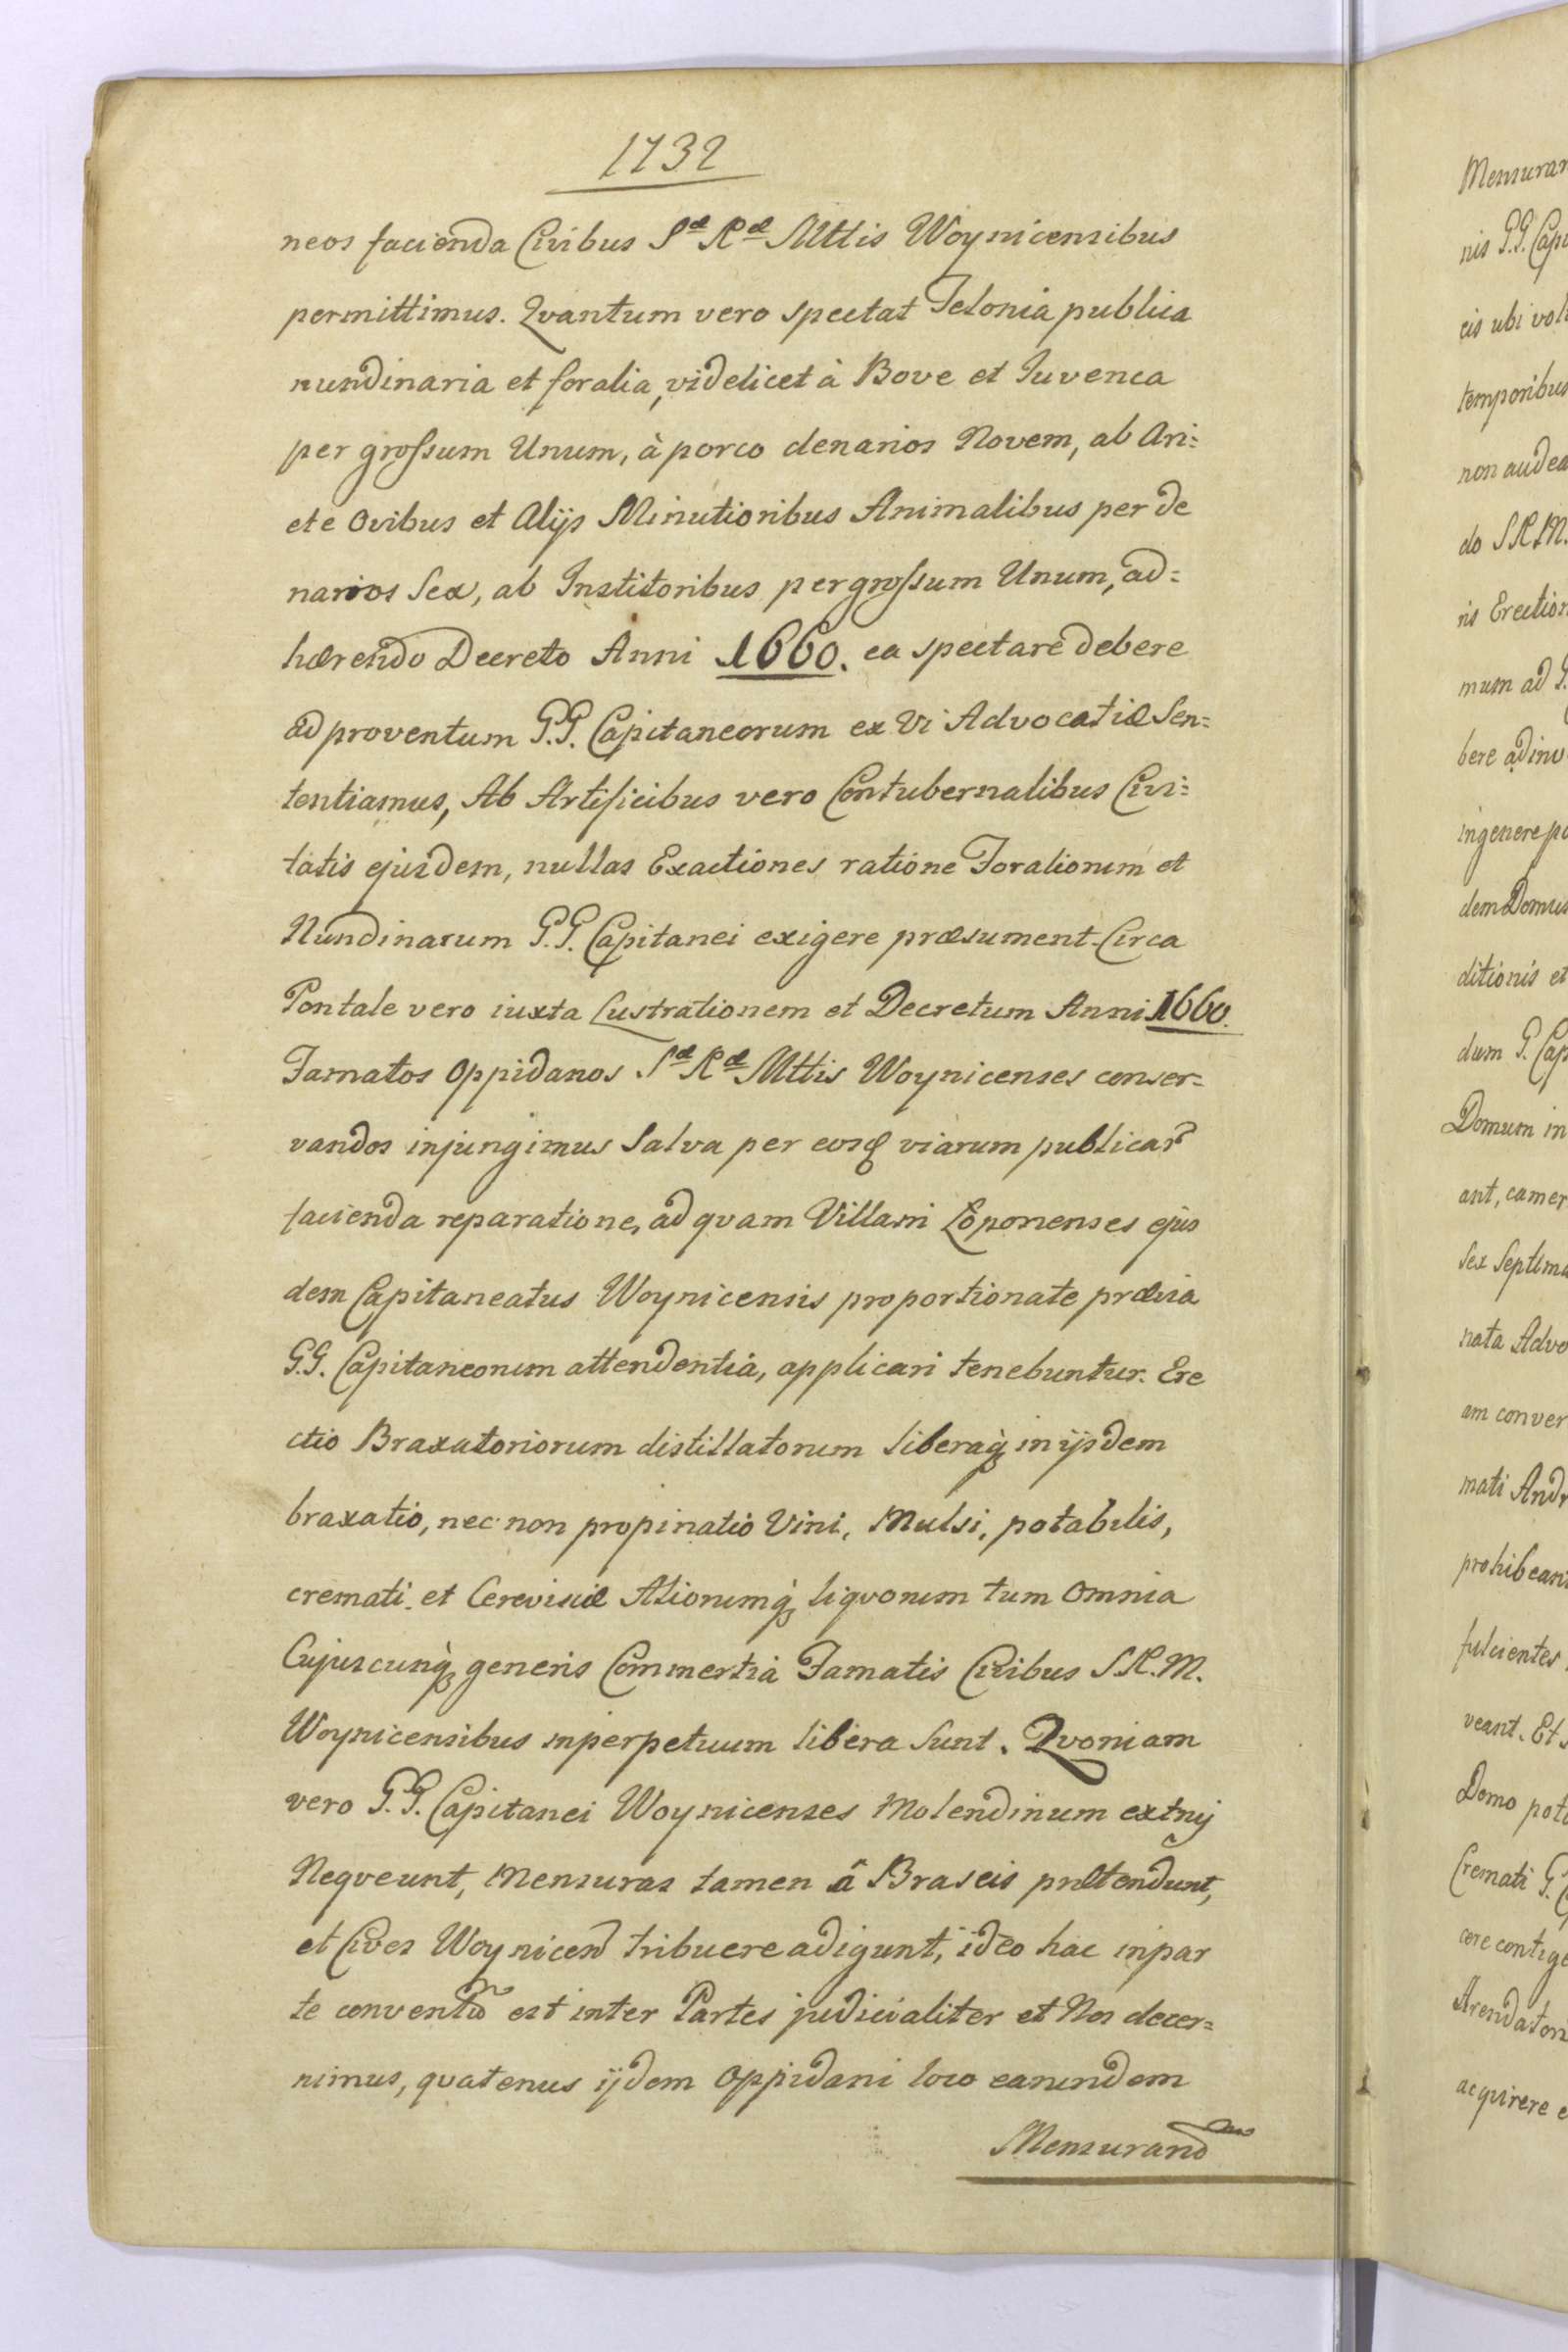 1732
neos facienda Civibus Sæ Ræ Mttis Woynicensibus
permittimus. Qvantum vero spectat Telonia publica
nundinaria et foralia, videlicet à Bove et Iuvenca
per grossum Unum, à porco denarios Novem, ab Ari=
ete Ovibus et Alijs Minutioribus Animalibus per de
narios Sex, ab Institoribus per grossum Unum, ad=
hærendo Decreto Anni 1660. ea spectare debere
ad proventum G.G. Capitaneorum ex vi Advocatiæ Sen=
tentiamus, Ab Artificibus vero Contubernalibus Civi=
tatis ejusdem, nullas Exactiones ratione Foralionum et
Nundinarum G.G. Capitanei exigere præsument. Circa
Pontale vero iuxta Lustrationem et Decretum Anni 1660.
Famatos Oppidanos Sæ Ræ Mttis Woynicenses conser=
vandos injungimus Salva per eosq viarum publicar
facienda reparatione, ad qvam Villani Łoponenses ejus
dem Capitaneatus Woynicensis proportionate prævia
G.G. Capitaneorum attendentia, applicari tenebuntur. Ere
ctio Braxatoriorum distillatorum liberaq in ijsdem
braxatio, nec non propinatio Vini, Mulsi, potabilis,
cremati et Cerevisiæ Aliorumq liqvorum tum Omnia
Cujuscunq generis Commertia Famatis Civibus S.R.M.
Woynicensibus inperpetuum libera Sunt. Qvoniam
vero G.G. Capitanei Woynicenses Molendinum extrui
Neqveunt, Mensuras tamen â Braseis prætendunt,
et Cives Woynicen tribuere adigunt, ideo hac inpar
te convent est inter Partes judicialiter et Nos decer=
nimus, qvatenus ijdem Oppidani loco earundem
Mensurand
Mensurar
nis G.G. Cap
cis ubi vol
temporibus
non audea
do S.R.M.
ris Erection
mum ad G.
bere adinv
ingenere po
dem Domus
ditionis et
dum G. Cap
Domum in
ant, camer
Sex Septima
nata Advo
am conver
mati Andr
prohibean
fulcientes
veant. Et
Domo pot
Cremati G.
core contige
Arendator
acqvirere e